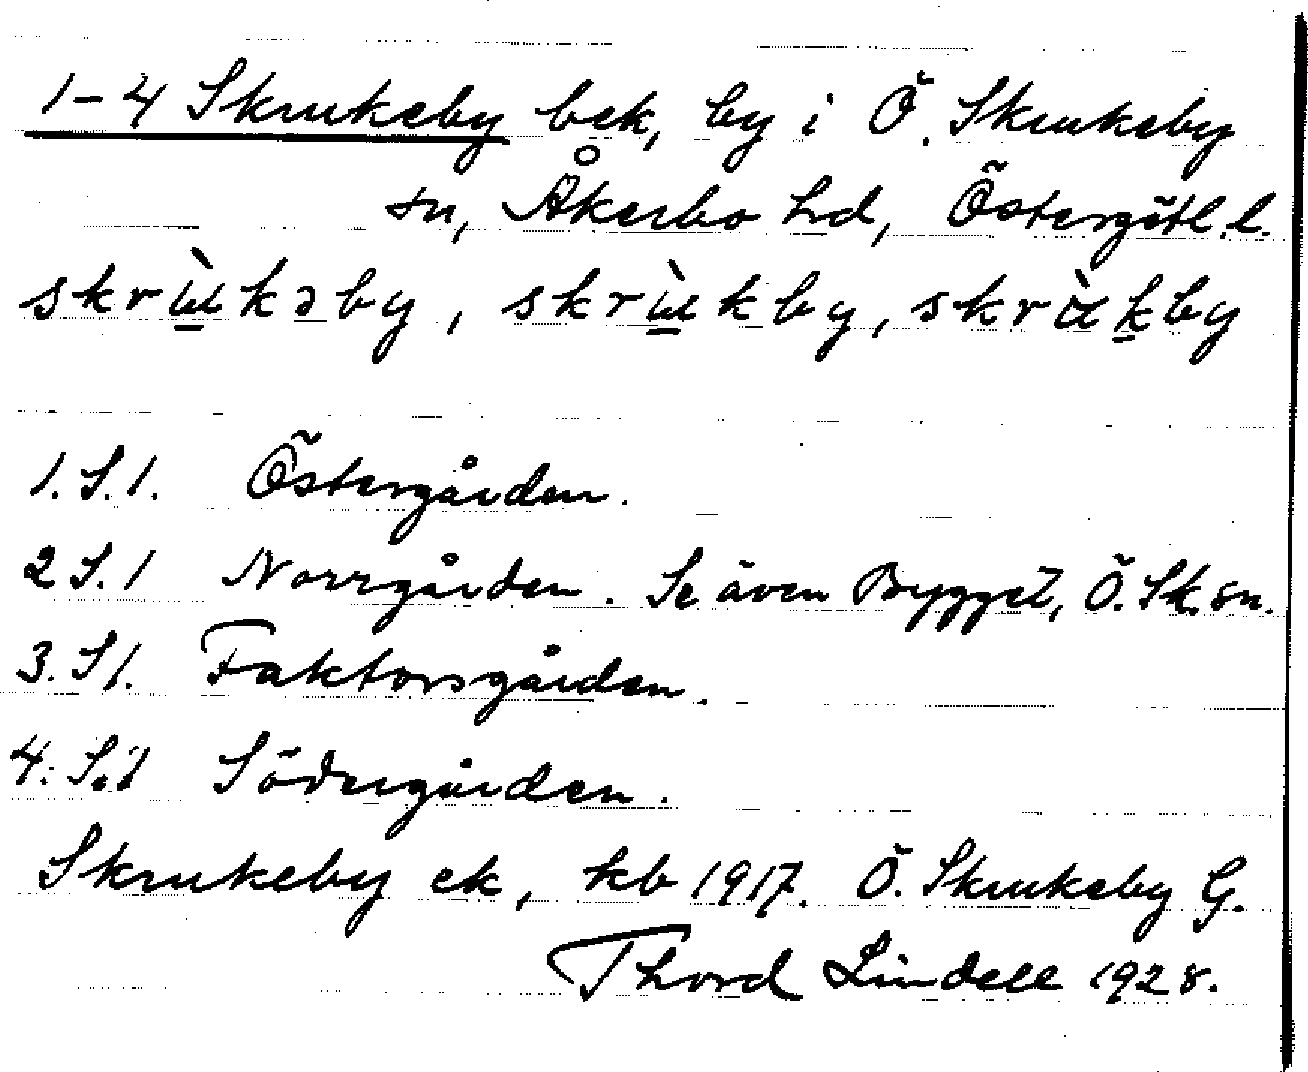 1-4 Skrukeby bek, by i Ö. Skrukeby
sn, Åkerbo hd, Östergötl. l.
skrùkəby, skrùkby, skrùkby
1. S. 1. Östergården.
2 S. 1 Norrgården. Se även Bygget, Ö. Sk. sn.
3. S 1. Faktorsgården.
4. S. 1 Södergården.
Skrukeby ek, kb 1917. Ö. Skrukeby G.
Thord Lindell 1928.